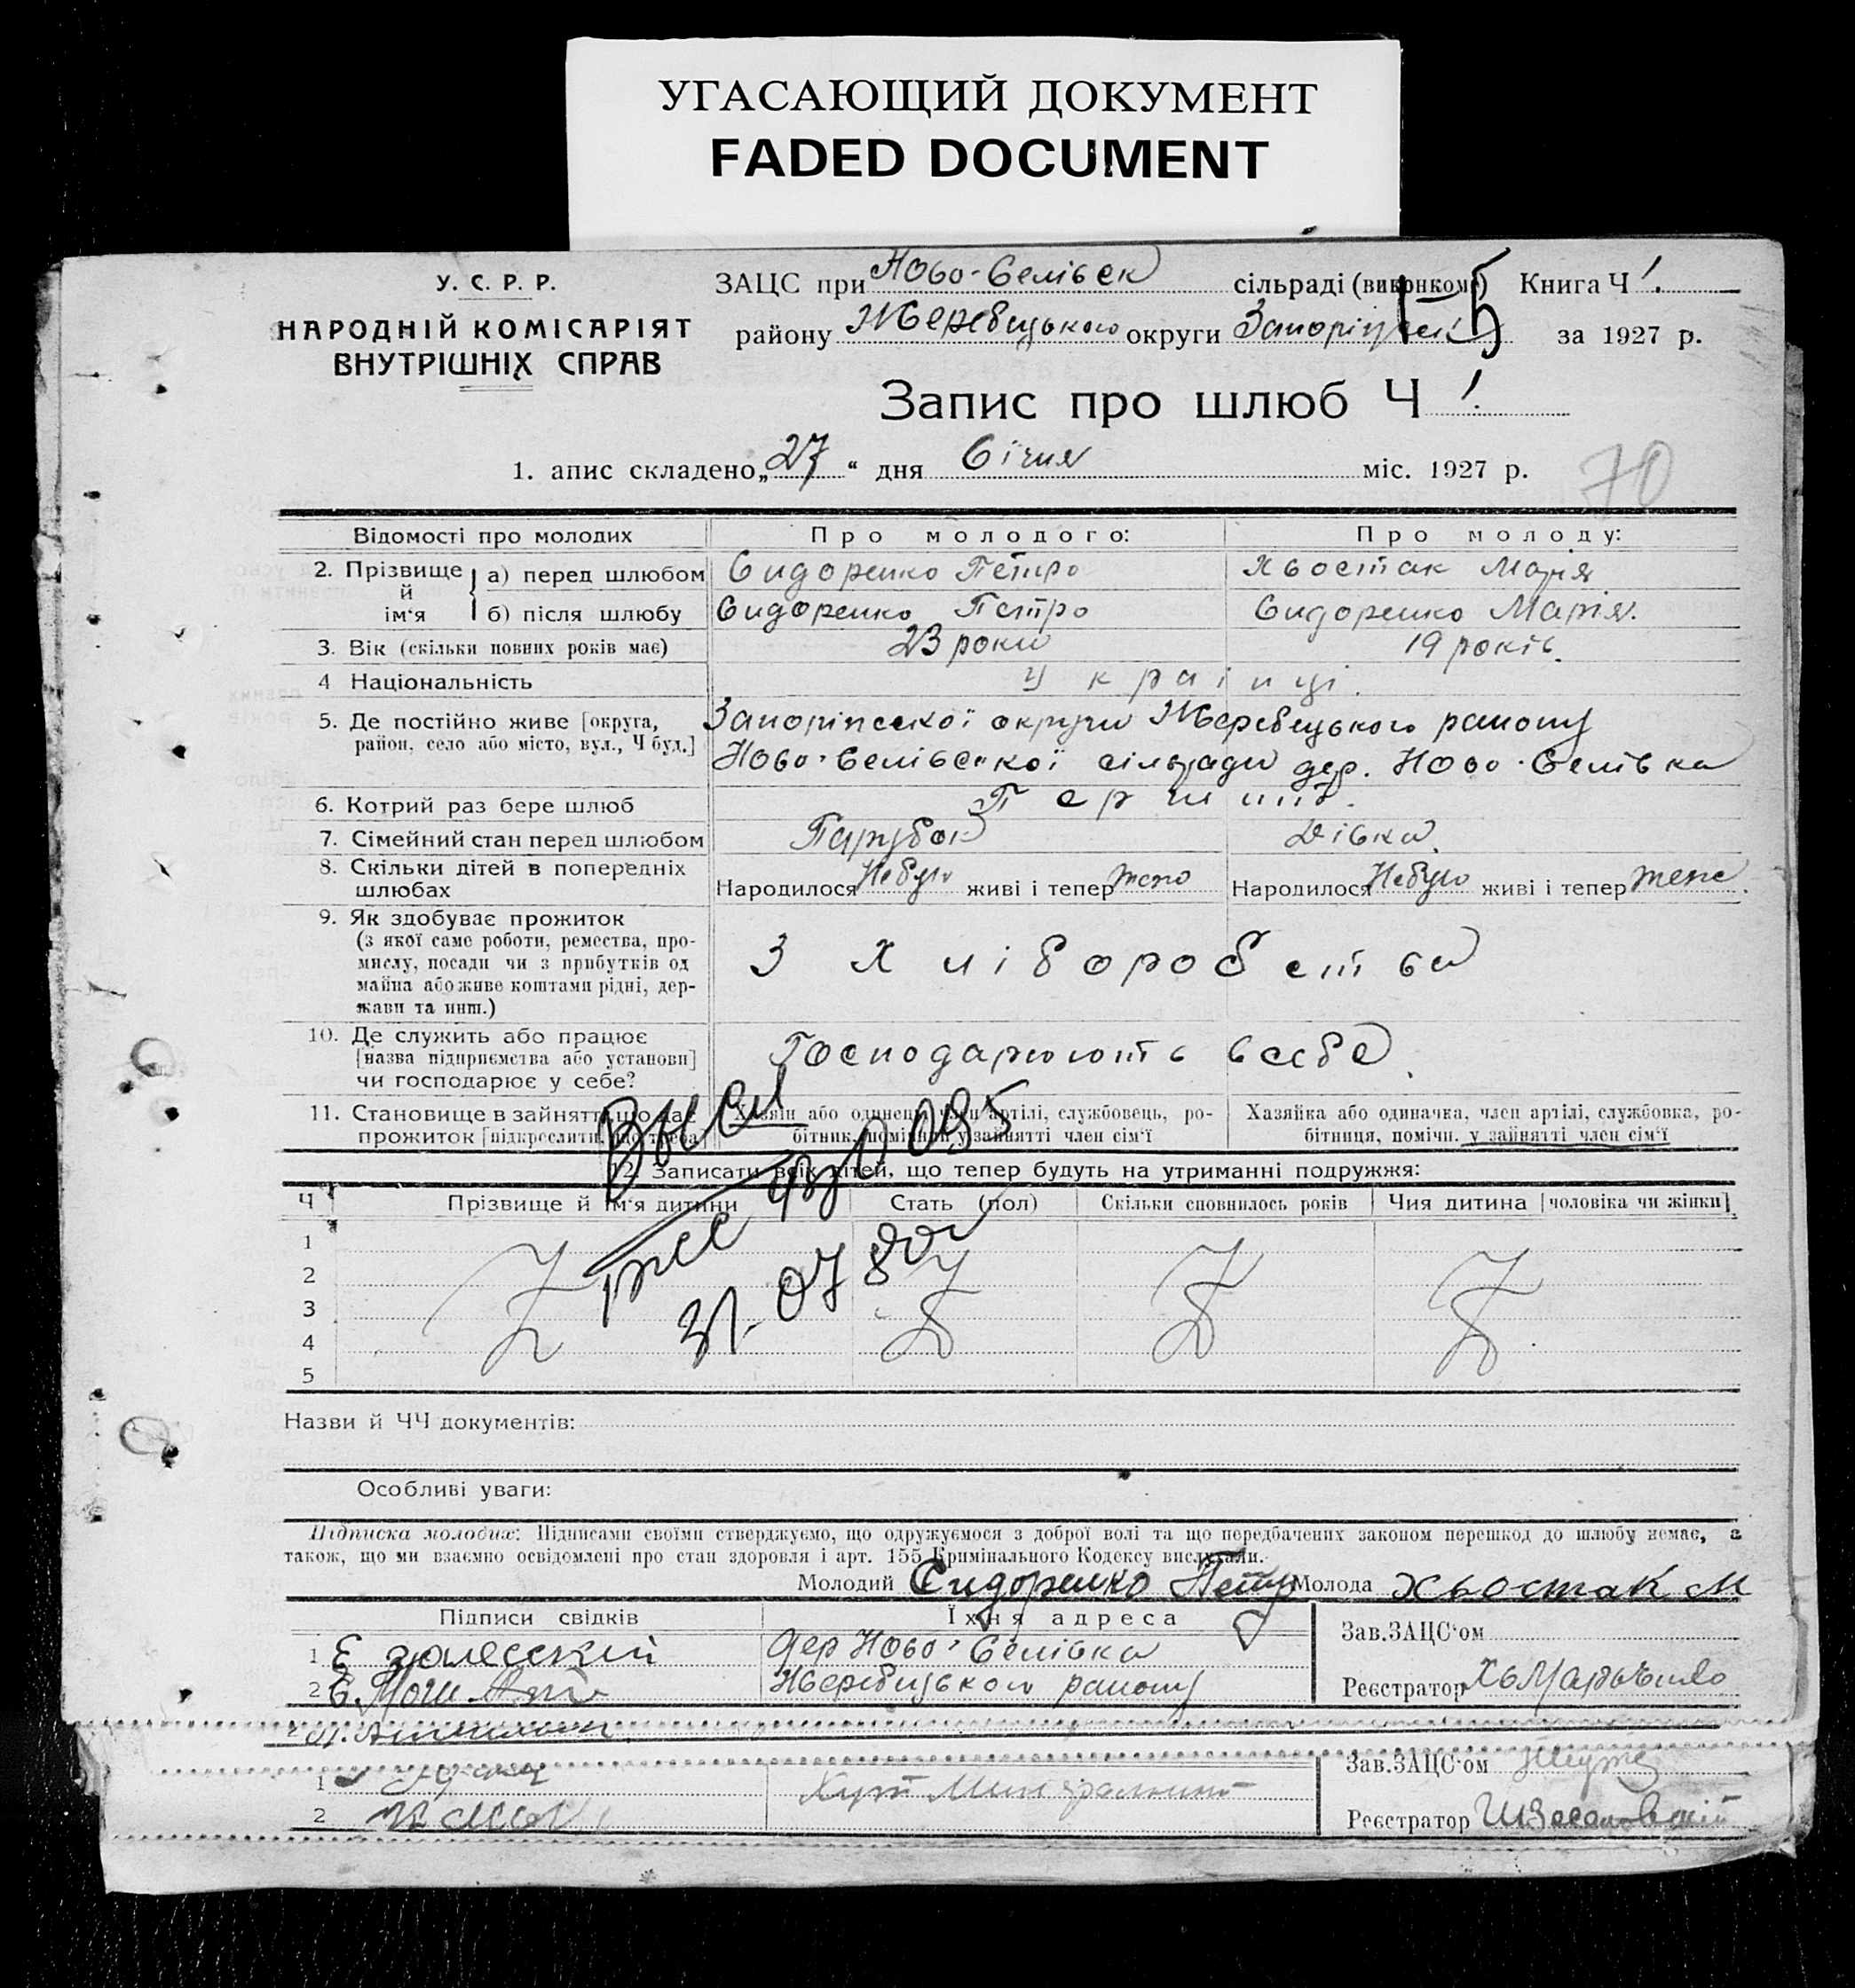 УГАСАЮЩИЙ ДОКУМЕНТ
FADED DOCUMENT
У. С. Р. Р.
НАРОДНІЙ КОМІСАРІЯТ
ВНУТРІШНІХ СПРАВ
ЗАЦС при Ново-Селівск сільраді (виконкомі) Книга Ч 1.
району Жеребецького округи Запоріжськ за 1927 р.
1-5
Запис про шлюб Ч 1.
1. апис складено „27“ дня Січня міс. 1927 р.
70
Відомості про молодих Про молодого: Про молоду:
2. Прізвище й ім‘я а) перед шлюбом Сидоренко Петро Хвостак Марія
б) після шлюбу Сидоренко Петро Сидоренко Марія.
3. Вік (скільки повних років має) 23 роки 19 років.
4 Національність Українці.
5. Де постійно живе [округа, район, село або місто, вул., Ч буд.] Запоріпської округи Жеребецького району
Ново-Селівської сільради дер. Ново-Селівка
6. Котрий раз бере шлюб Перший.
7. Сімейний стан перед шлюбом Парубок Дівка.
8. Скільки дітей в попередніх шлюбах Народилося Небуло живі і тепер Народилося Небуло живі і тепер
9. Як здобуває прожиток
(з якої саме роботи, ремества, про-
мислу, посади чи з прибутків од
майна або живе коштами рідні, дер-
жави та инш.)
З хліборобства
10. Де служить або працює
[назва підприємства або установи]
чи господарює у себе?
Господарюють в себе.
11. Становище в занятті, що дає
прожиток [підкреслити, що треба]
Хазяїн або одинець, член артілі, службовець, ро-
бітник, помічник у занятті член сім‘ї
Хазяйка або одиначка, член артілі, службовка, ро-
бітниця, помічн. у занятті член сім‘ї
12 Записати всіх дітей, що тепер будуть на утриманні подружжя:
Ч Прізвище й ім‘я дитини Стать (пол) Скільки сповнилось років Чия дитина [чоловіка чи жінки]
1
2
3
4
5
31.07 80
Назви й ЧЧ документів:
Особливі уваги:
Підписка молодих: Підписами своїми стверджуємо, що одружуємося з доброї волі та що передбачених законом перешкод до шлюбу немає, а
також, що ми взаємно освідомлені про стан здоровля і арт. 155 Кримінального Кодексу вислухали.
Молодий Сидоренко Петр Молода Хвостак М
Підписи свідків Їхня адреса
1 Е дер Ново-Селівка
2 Жеребицького району
Зав.ЗАЦС‘ом
Реєстратор
1 Хут
2
Зав.ЗАЦС‘ом
Реєстратор